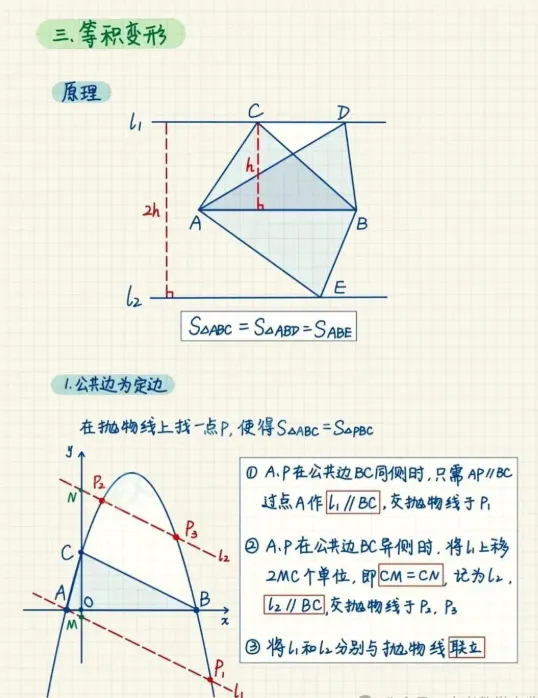 三.等积变形
原理
l₁
C
D
h
2h
A
B
l₂
E
S△ABC = S△ABD = SABE
1.公共边为定边
在抛物线上找一点P,使得S△ABC = S△PBC
y
N
P₂
P₃
l₂
C
A
O
B
x
M
P₁
l₁
① A、P在公共边BC同侧时,只需AP∥BC
过点A作l₁∥BC,交抛物线于P₁
② A、P在公共边BC异侧时,将l₁上移
2MC个单位,即CM=CN,记为l₂,
l₂∥BC,交抛物线于P₂、P₃
③ 将l₁和l₂分别与抛物线联立